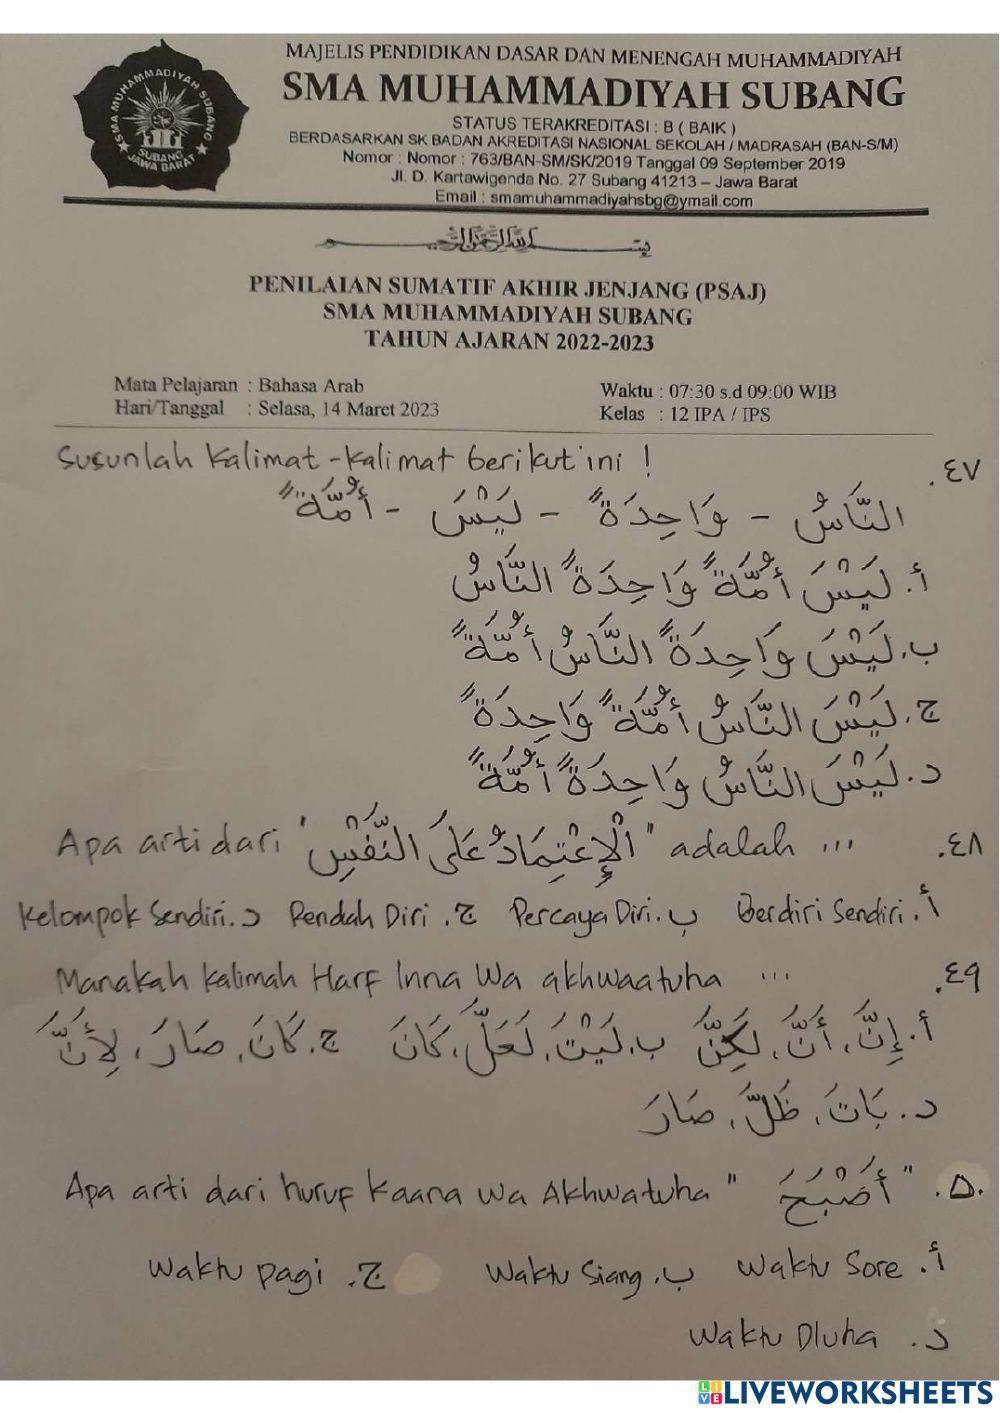 MAJELIS PENDIDIKAN DASAR DAN MENENGAH MUHAMMADIYAH
SMA MUHAMMADIYAH SUBANG
STATUS TERAKREDITASI : B ( BAIK )
BERDASARKAN SK BADAN AKREDITASI NASIONAL SEKOLAH / MADRASAH (BAN-S/M)
Nomor : Nomor : 763/BAN-SM/SK/2019 Tanggal 09 September 2019
Jl. D. Kartawigenda No. 27 Subang 41213 – Jawa Barat
Email : smamuhammadiyahsbg@ymail.com
SMA MUHAMMADIYAH SUBANG
SUBANG
JAWA BARAT
بسم الله الرحمن الرحيم
PENILAIAN SUMATIF AKHIR JENJANG (PSAJ)
SMA MUHAMMADIYAH SUBANG
TAHUN AJARAN 2022-2023
Mata Pelajaran : Bahasa Arab
Hari/Tanggal : Selasa, 14 Maret 2023
Waktu : 07:30 s.d 09:00 WIB
Kelas : 12 IPA / IPS
٤٧. Susunlah Kalimat-kalimat berikut ini !
النَّاسُ - وَاحِدَةً - لَيْسَ - أُمَّةً
أ. لَيْسَ أُمَّةً وَاحِدَةً النَّاسُ
ب. لَيْسَ وَاحِدَةً النَّاسُ أُمَّةً
ج. لَيْسَ النَّاسُ أُمَّةً وَاحِدَةً
د. لَيْسَ النَّاسُ وَاحِدَةً أُمَّةً
٤٨. Apa arti dari "الْإِعْتِمَادُ عَلَى النَّفْسِ" adalah ...
أ. Berdiri Sendiri ب. Percaya Diri ج. Rendah Diri د. Kelompok Sendiri
٤٩. Manakah kalimah Harf Inna Wa akhwaatuha ...
أ. إِنَّ، أَنَّ، لَكِنَّ ب. لَيْتَ، لَعَلَّ، كَانَ ج. كَانَ، صَارَ، لِأَنَّ
د. بَاتَ، ظَلَّ، صَارَ
٥٠. Apa arti dari huruf Kaana wa Akhwatuha " أَصْبَحَ "
أ. Waktu Sore ب. Waktu Siang ج. Waktu pagi
د. Waktu Dluha
LIVEWORKSHEETS